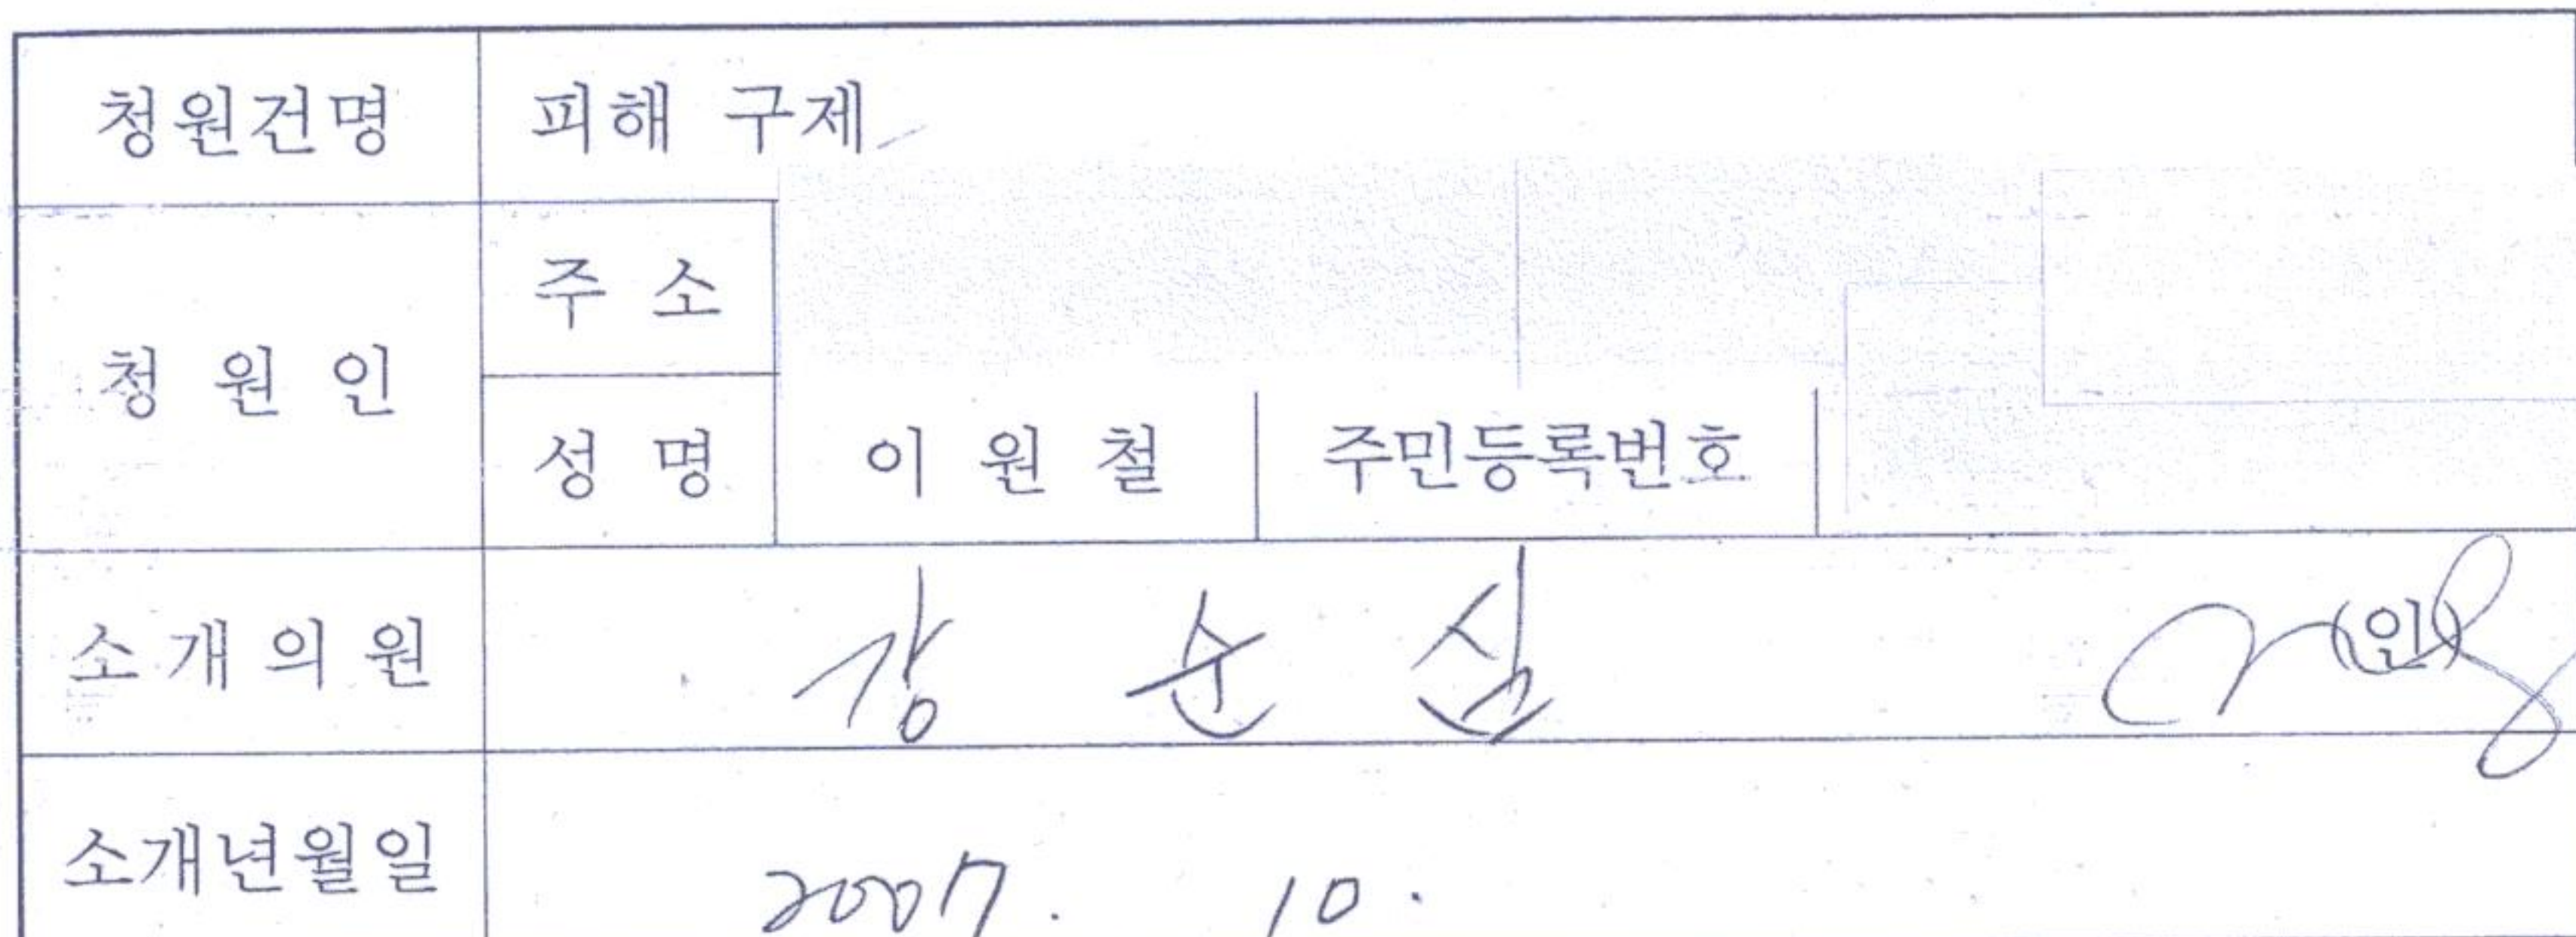 청원건명 피해 구제
청 원 인
주 소
성 명 이 원 철 주민등록번호
소 개 의 원 강 순 심 (인)
소개년월일 2007. 10.